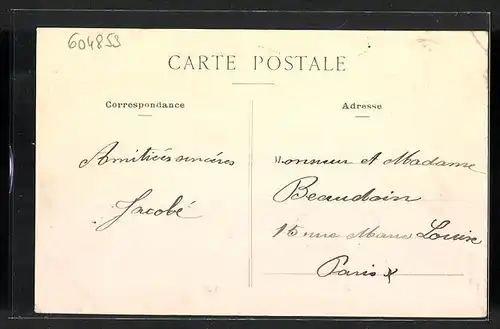 604853
CARTE POSTALE
Correspondance
Amitiées sincères
Jacobé
Adresse
Monsieur et Madame
Beaudoin
15 rue Marie Louise
Paris x